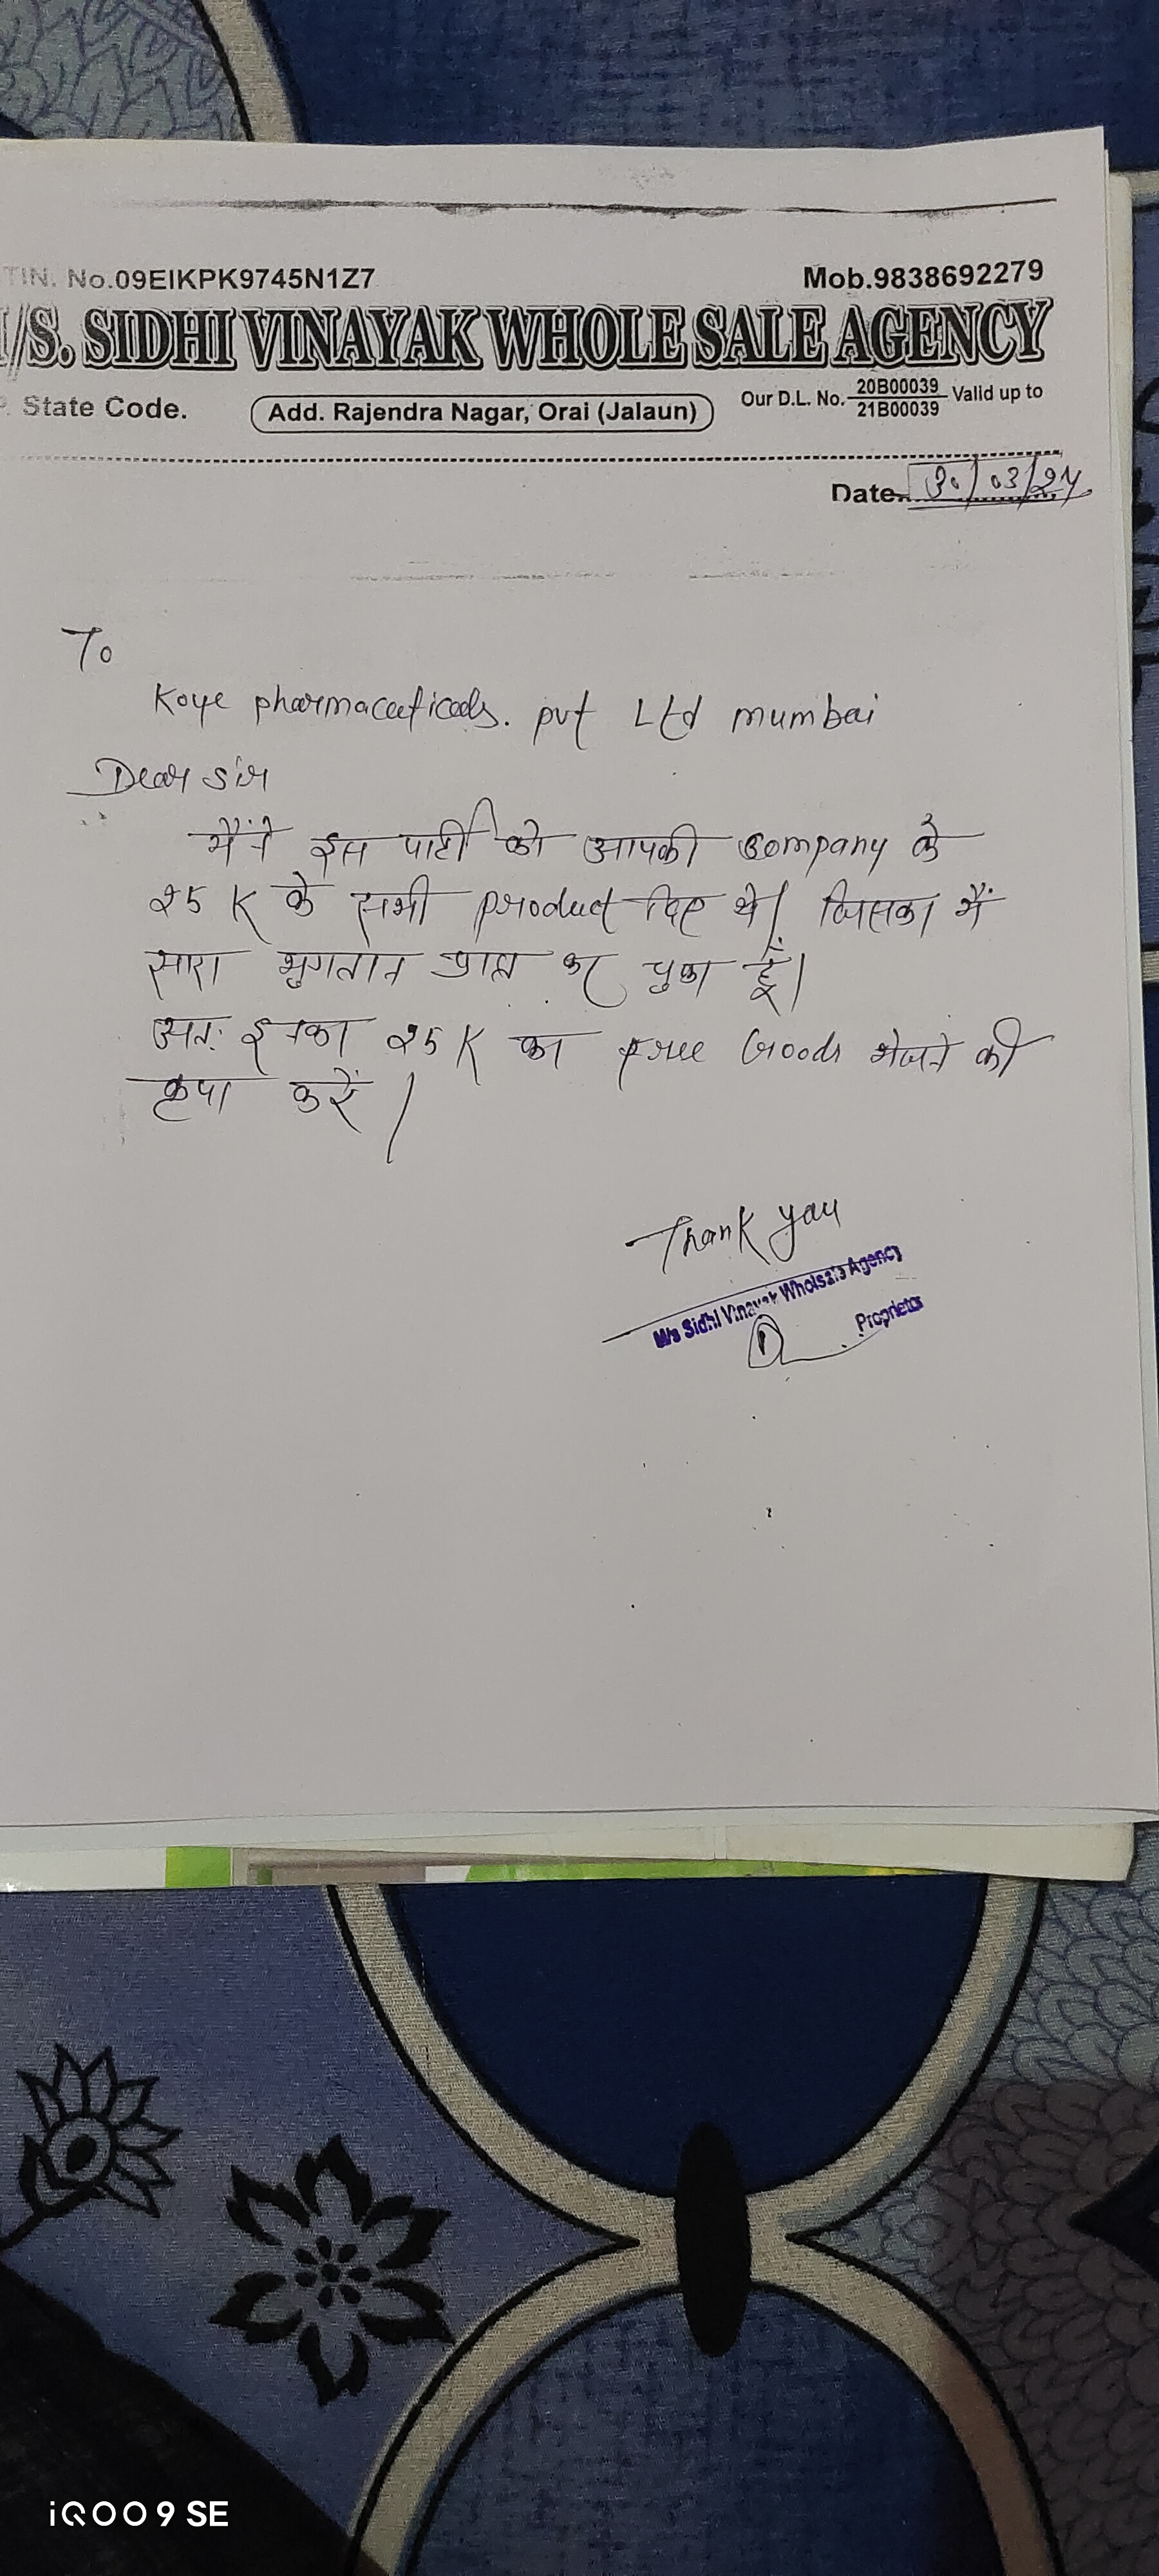 TIN. No.09EIKPK9745N1Z7 Mob.9838692279
/S. SIDHI VINAYAK WHOLE SALE AGENCY
State Code. Add. Rajendra Nagar, Orai (Jalaun) Our D.L. No. 20B00039 / 21B00039 Valid up to
Date 30/03/24
To
Koye pharmaceuticals. pvt Ltd mumbai
Dear sir
मैंने इस पार्टी को आपकी Company के
25 K के सभी product दिए थे। जिसका मैं
सारा भुगतान प्राप्त कर चुका हूँ।
अतः इनका 25 K का free Goods भेजने की
कृपा करें।
Thank you
M/s Sidhi Vinayak Wholsale Agency
Proprietor
iQOO 9 SE